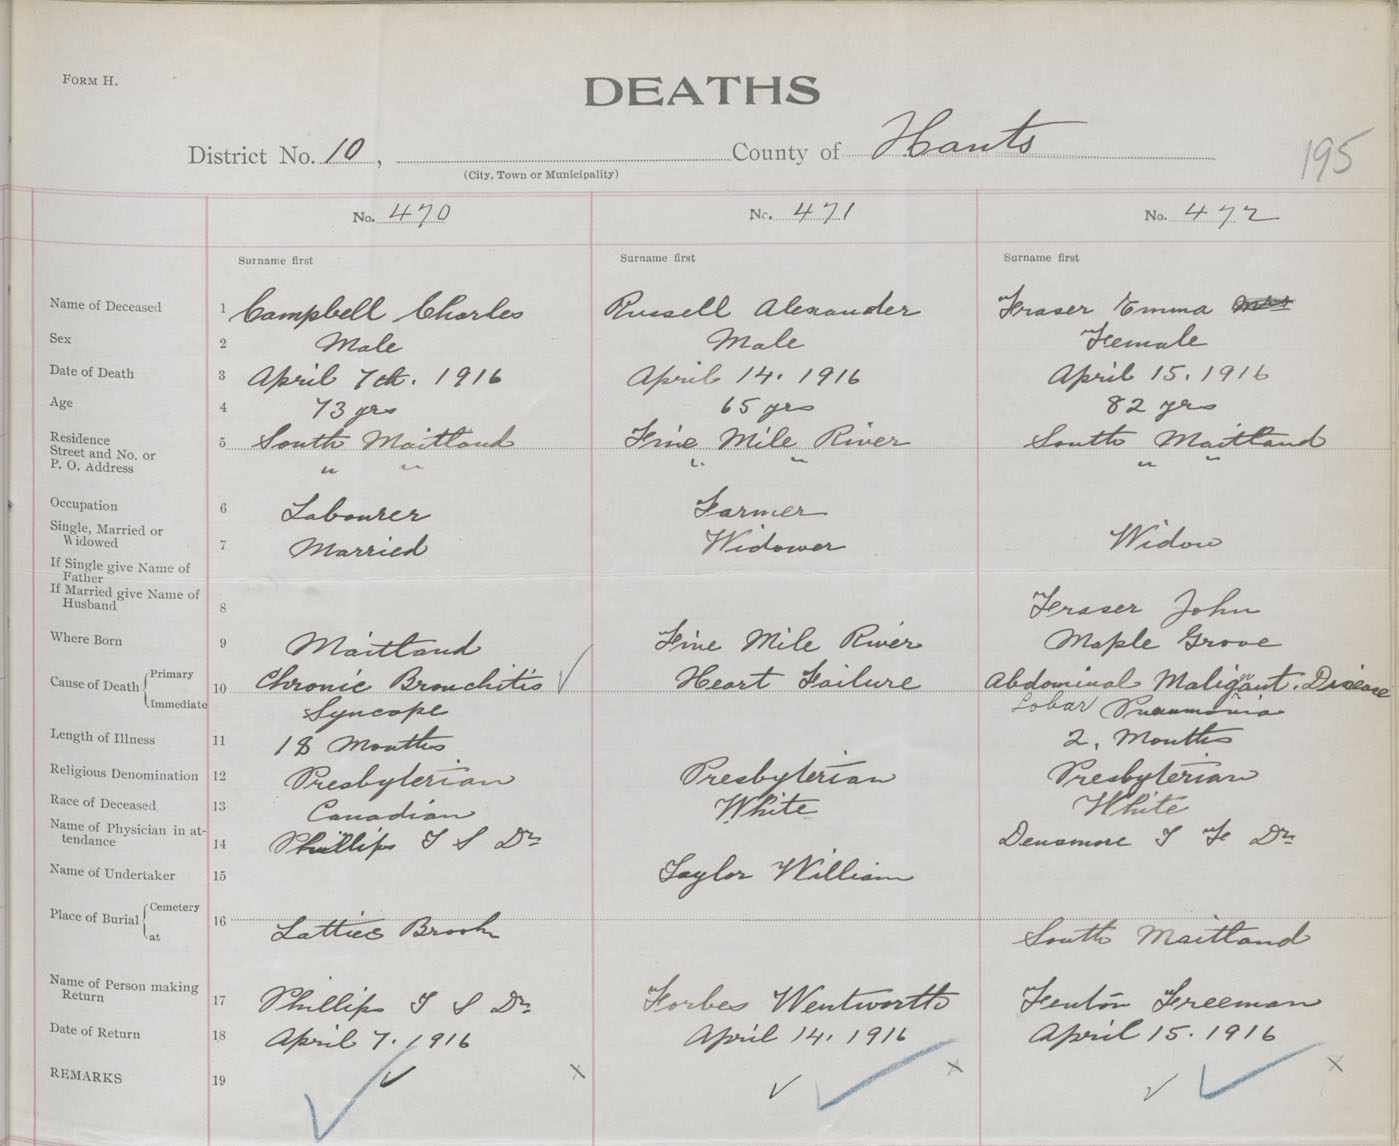 FORM H.
DEATHS
District No. 10 , County of Hants
195
(City, Town or Municipality)
No. 470 No. 471 No. 472
Surname first Surname first Surname first
Name of Deceased 1 Campbell Charles Russell Alexander Fraser Emma
Sex 2 Male Male Female
Date of Death 3 April 7th. 1916 April 14. 1916 April 15. 1916
Age 4 73 yrs 65 yrs 82 yrs
Residence 5 South Maitland Five Mile River South Maitland
Street and No. or
P. O. Address " " " " " "
Occupation 6 Labourer Farmer
Single, Married or
Widowed 7 Married Widower Widow
If Single give Name of
Father
If Married give Name of
Husband 8 Fraser John
Where Born 9 Maitland Five Mile River Maple Grove
Cause of Death Primary 10 Chronic Bronchitis Heart Failure Abdominal Malignant. Disease
Immediate Syncope Lobar Pneumonia
Length of Illness 11 18 Months 2. Months
Religious Denomination 12 Presbyterian Presbyterian Presbyterian
Race of Deceased 13 Canadian White White
Name of Physician in at-
tendance 14 Phillips T S Dr Densmore T F Dr
Name of Undertaker 15 Taylor William
Place of Burial Cemetery 16
at Latties Brook South Maitland
Name of Person making
Return 17 Phillips T S Dr Forbes Wentworth Fenton Freeman
Date of Return 18 April 7. 1916 April 14. 1916 April 15. 1916
REMARKS 19 x x x